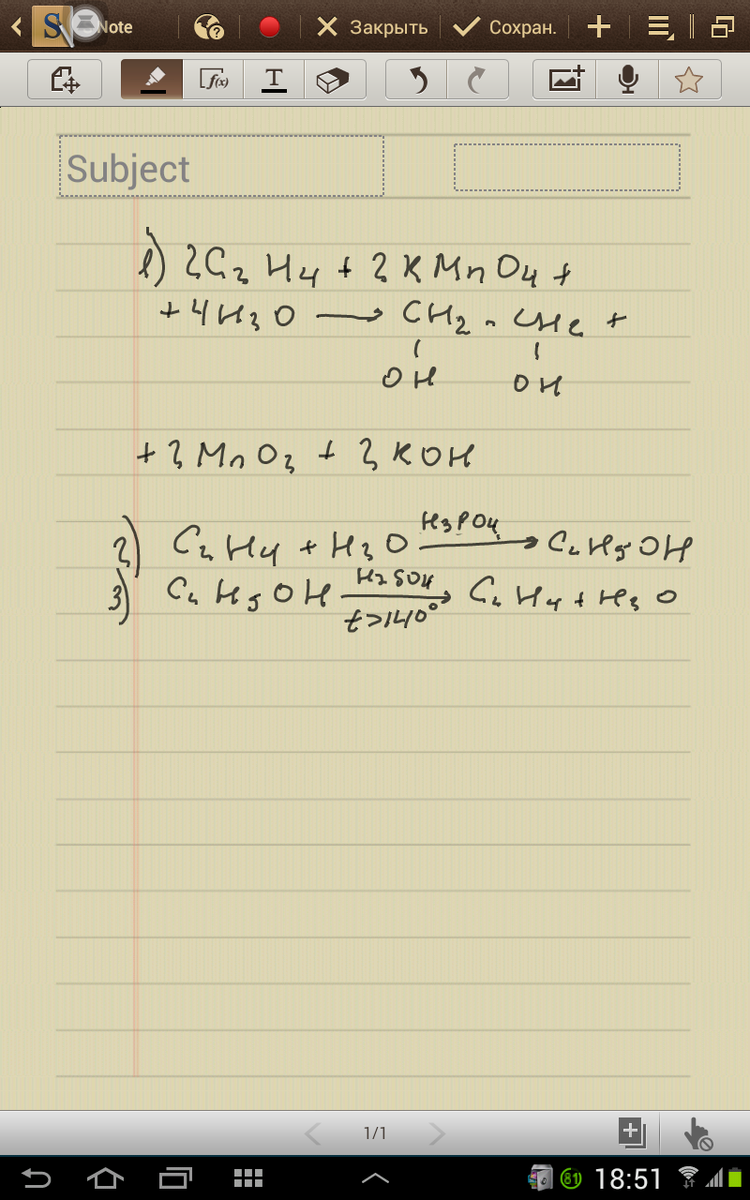 S Note Закрыть Сохран.
f(x) T
Subject
1) 2C2H4 + 2KMnO4 +
+ 4H2O → CH2 - CH2 +
OH OH
+ 2MnO2 + 2KOH
2) C2H4 + H2O H3PO4 → C2H5OH
3) C2H5OH H2SO4 → C2H4 + H2O
t>140°
1/1
81 18:51